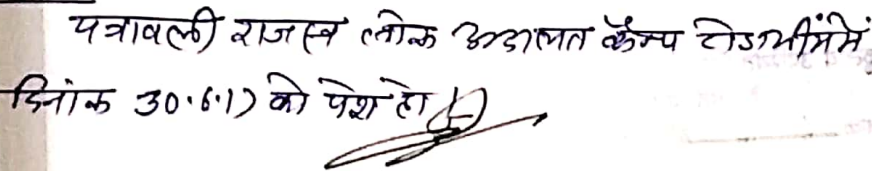 पत्रावली राजस्व लोक अदालत कैम्प टोडाभीम में
दिनांक 30.6.17 को पेश हो